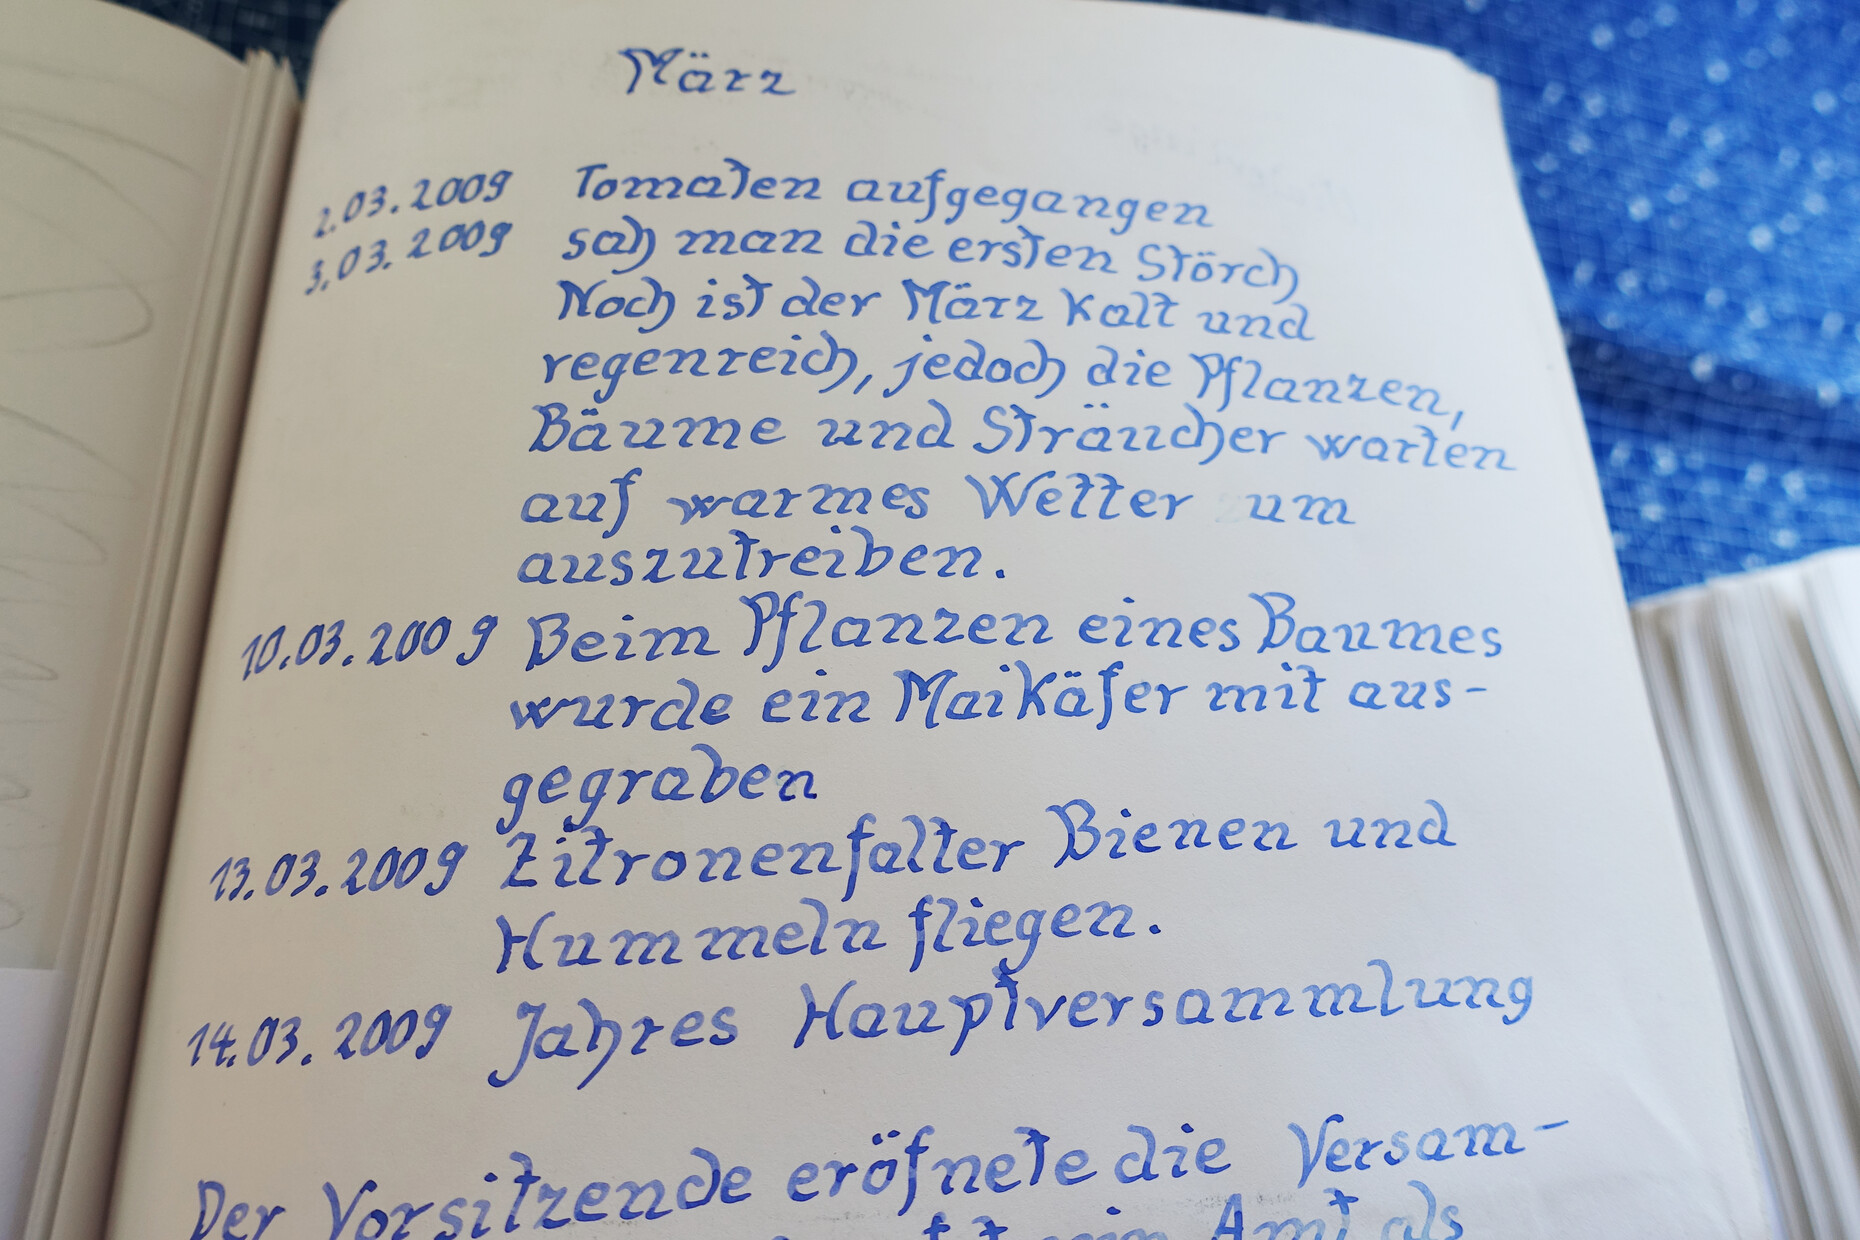 März
2.03.2009 Tomaten aufgegangen
3.03.2009 sah man die ersten Störch
Noch ist der März kalt und
regenreich, jedoch die Pflanzen,
Bäume und Sträucher warten
auf warmes Wetter um
auszutreiben.
10.03.2009 Beim Pflanzen eines Baumes
wurde ein Maikäfer mit aus-
gegraben
13.03.2009 Zitronenfalter Bienen und
Hummeln fliegen.
14.03.2009 Jahres Hauptversammlung
Der Vorsitzende eröfnete die Versam-
sein Amt als